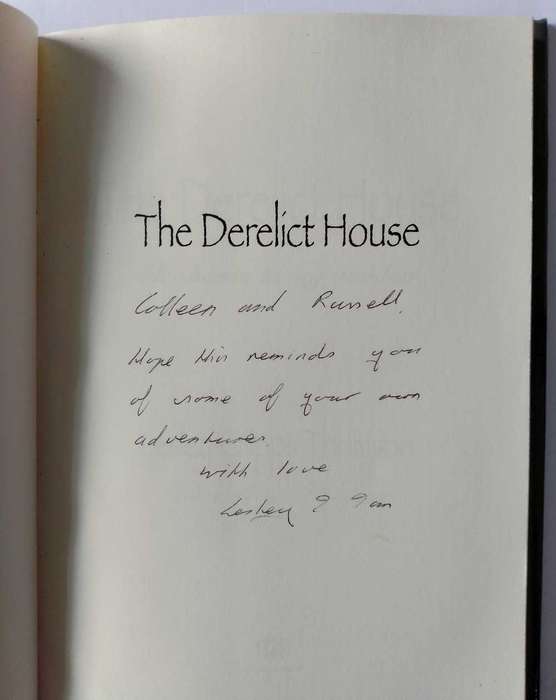 The Derelict House
Colleen and Russell.
Hope this reminds you
of some of your own
adventures.
with love
Lesley &